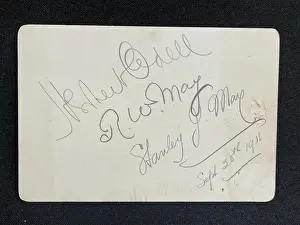 Herbert Odell
R. W. May
Stanley J May
Sept 28th 1911